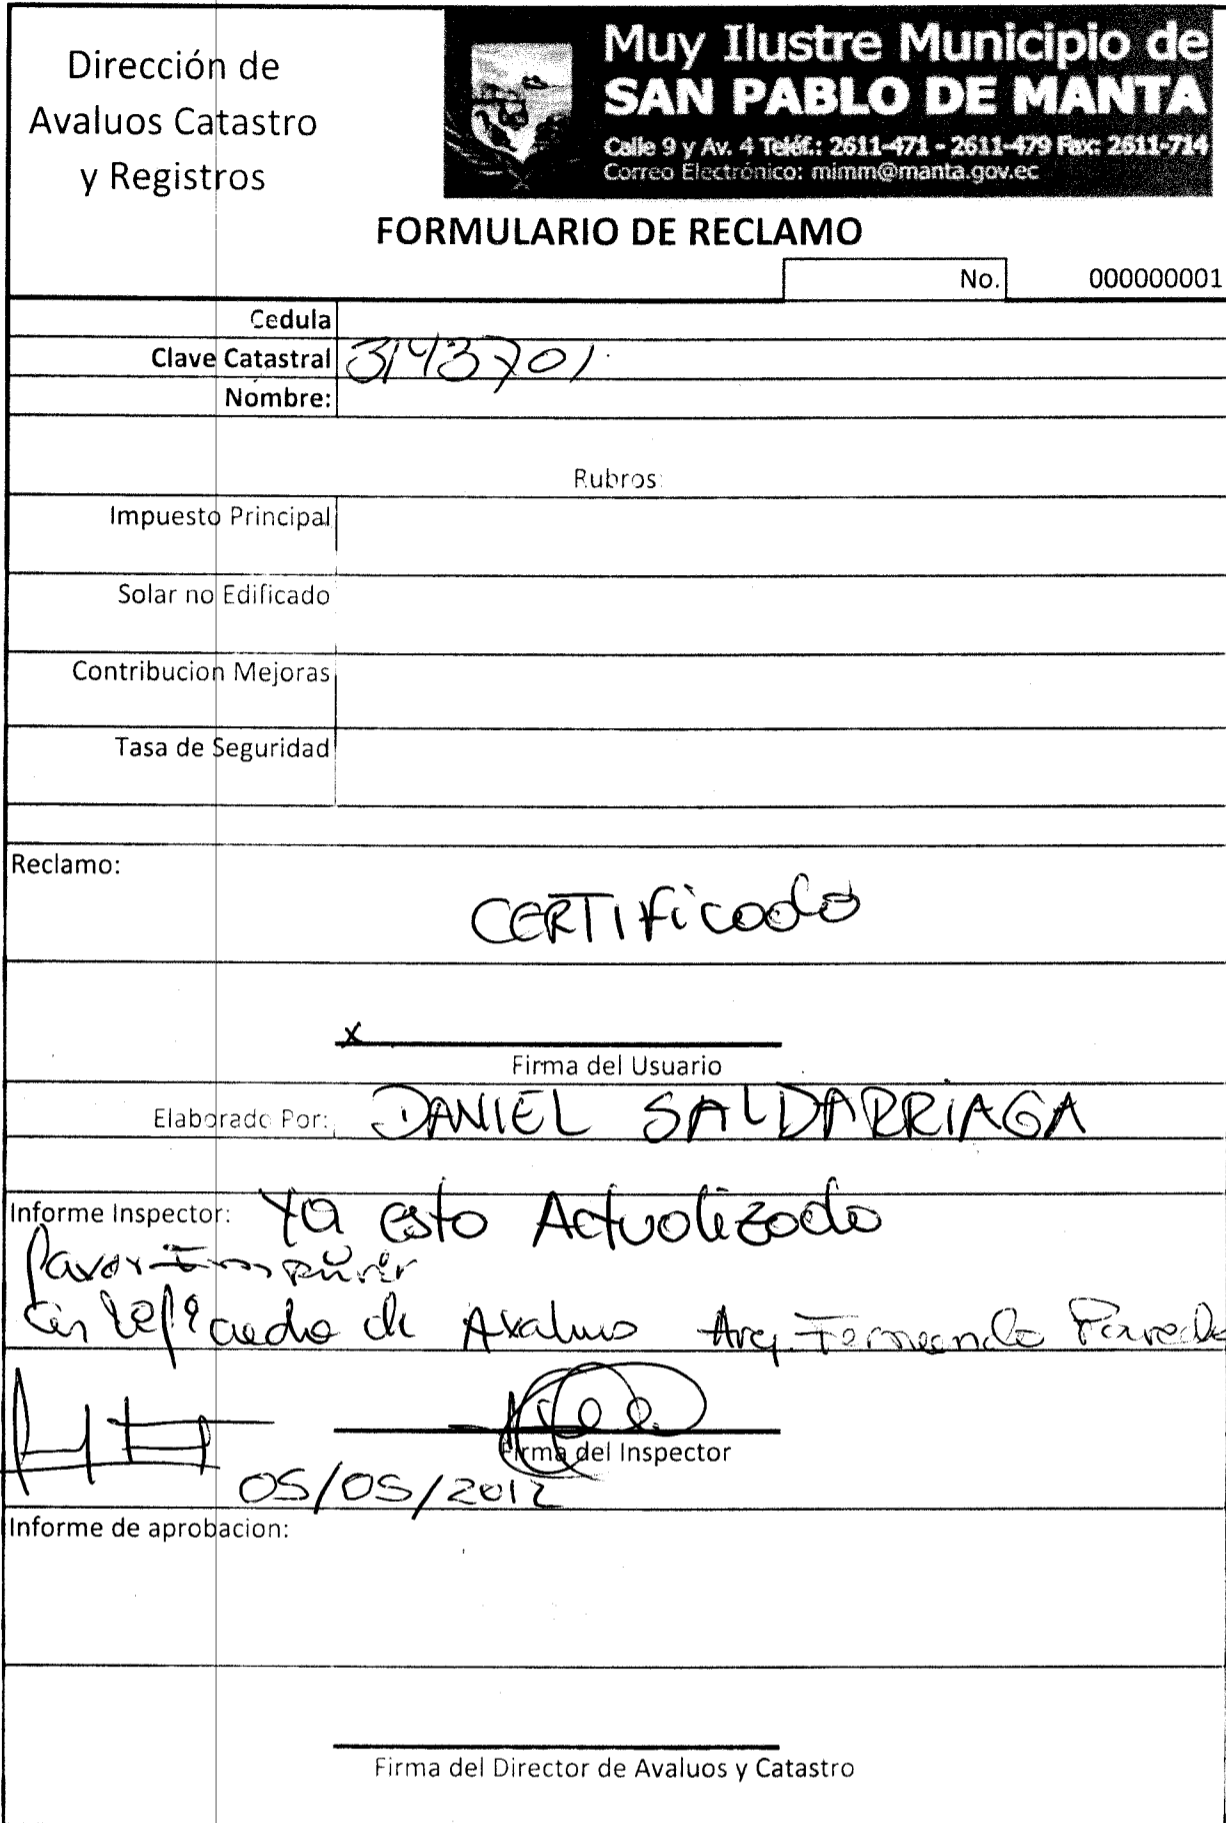 Dirección de
Avaluos Catastro
y Registros
Muy Ilustre Municipio de
SAN PABLO DE MANTA
Calle 9 y Av. 4 Teléf.: 2611-471 - 2611-479 Fax: 2611-714
Correo Electrónico: mimm@manta.gov.ec
FORMULARIO DE RECLAMO
No. 000000001
Cedula
Clave Catastral 3143701
Nombre:
Rubros:
Impuesto Principal
Solar no Edificado
Contribucion Mejoras
Tasa de Seguridad
Reclamo:
CERTIFicado
x
Firma del Usuario
Elaborado Por: DANIEL SALDARRIAGA
Informe Inspector: Ya esta Actualizado
favor
de Avaluo Arq. Fernando
Firma del Inspector
05/05/2012
Informe de aprobacion:
Firma del Director de Avaluos y Catastro